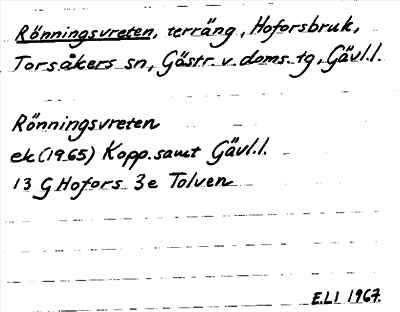 Rönningsvreten, terräng, Hoforsbruk,
Torsåkers sn, Gästr. v. doms. tg, Gävl.l.
Rönningsvreten
ek (1965) Kopp. samt Gävl.l.
13 G Hofors 3e Tolven
E.LI 1967.